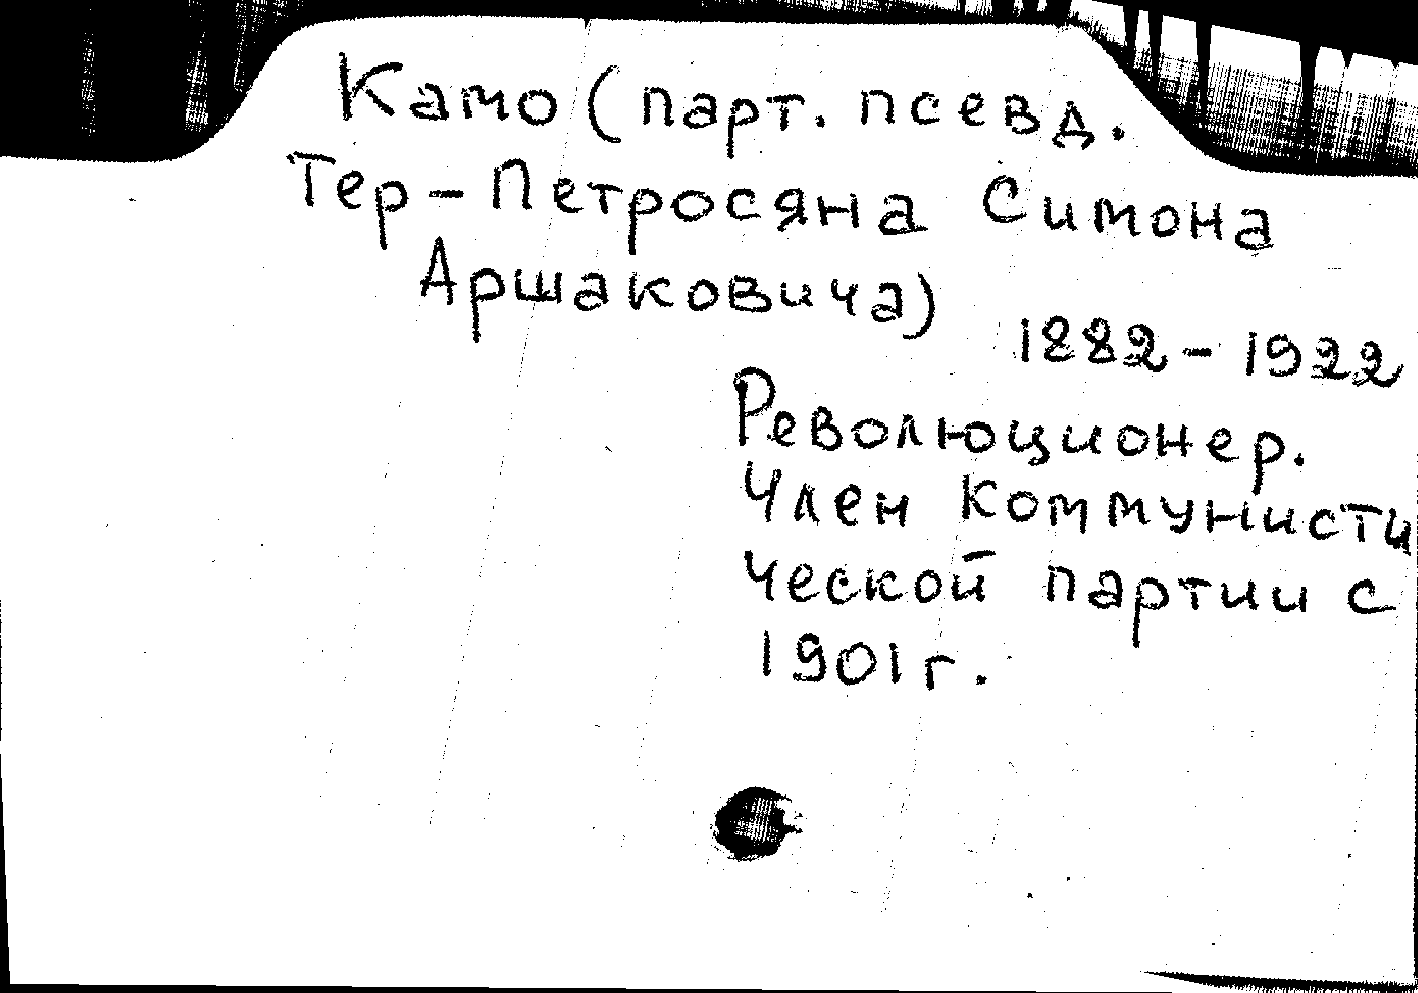 Камо (парт. псевд.
Тер-Петросяна Симона
Аршаковича)
1882-1922
Революционер.
Член Коммунисти
ческой партии с
1901г.